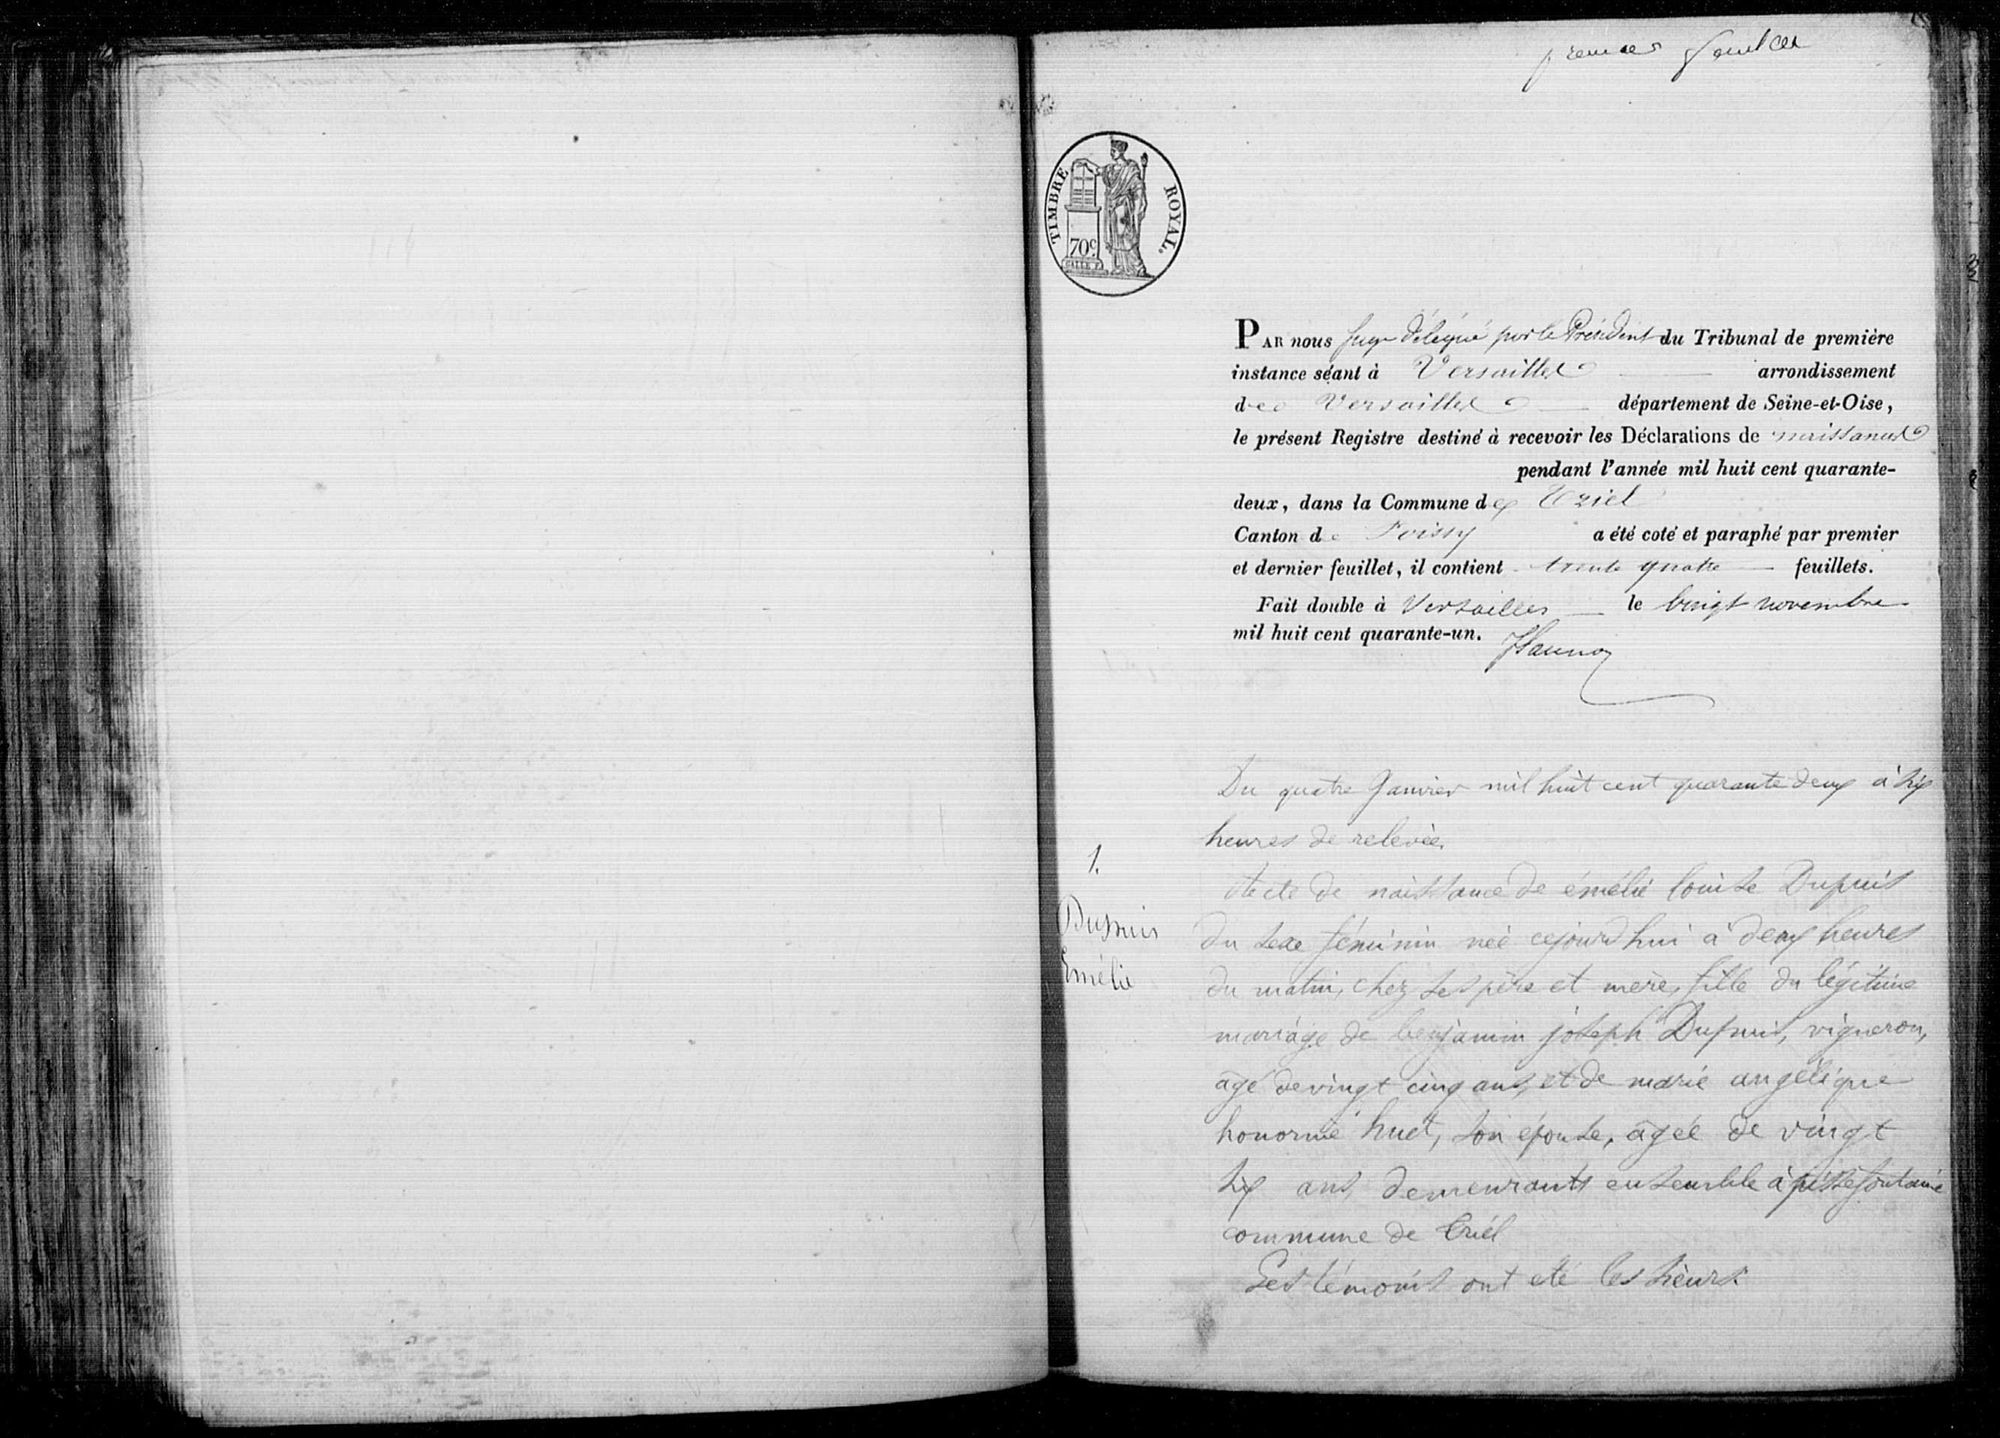 premier feuillet
TIMBRE ROYAL.
70c
PAR nous Juge délégué par le Président du Tribunal de première
instance séant à Versailles arrondissement
de Versailles département de Seine-et-Oise,
le présent Registre destiné à recevoir les Déclarations de naissances
pendant l'année mil huit cent quarante-
deux, dans la Commune de Triel
Canton de Poissy a été coté et paraphé par premier
et dernier feuillet, il contient trente quatre feuillets.
Fait double à Versailles le vingt novembre
mil huit cent quarante-un.
Du quatre Janvier mil huit cent quarante deux à six
heures de relevée,
1.
Dupuis
Emélie
Acte de naissance de émélie louise Dupuis
du sexe féminin née cejourd'hui à deux heures
du matin, chez ses père et mère, fille du légitime
mariage de benjamin joseph Dupuis, vigneron,
âgé de vingt cinq ans, et de marie angélique
honorine huet, son épouse, âgée de vingt
six ans, demeurants ensemble à pissefontaine
commune de triel
Les témoins ont été les sieurs